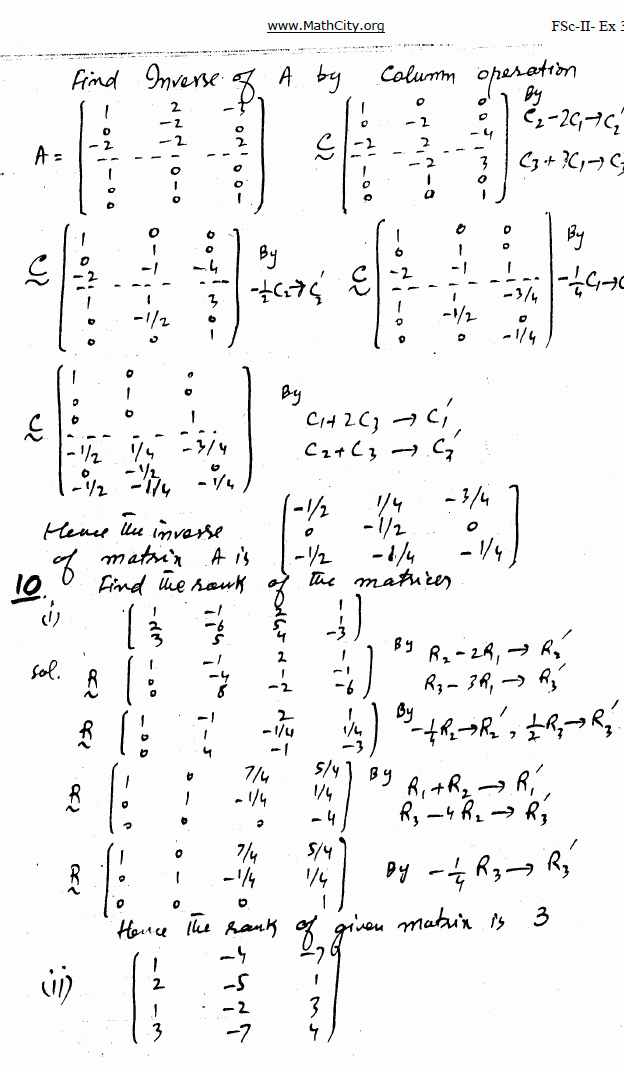 www.MathCity.org FSc-II- Ex 3
Find Inverse of A by Column operation
A = [ 1 2 -3
0 -2 0
-2 -2 2
- - - - - - - -
1 0 0
0 1 0
0 0 1 ]
C ~ [ 1 0 0
0 -2 0
-2 2 -4
- - - - - - - -
1 -2 3
0 1 0
0 0 1 ]
By
C₂-2C₁→C₂′
C₃+3C₁→C₃
C ~ [ 1 0 0
0 1 0
-2 -1 -4
- - - - - - - -
1 1 3
0 -1/2 0
0 0 1 ]
By
-½C₂→C₂′
C ~ [ 1 0 0
0 1 0
-2 -1 1
- - - - - - - -
1 1 -3/4
0 -1/2 0
0 0 -1/4 ]
By
-¼C₁→C
C ~ [ 1 0 0
0 1 0
0 0 1
- - - - - - - -
-1/2 1/4 -3/4
0 -1/2 0
-1/2 -1/4 -1/4 ]
By
C₁+2C₃ → C₁′
C₂+C₃ → C₂′
Hence the inverse
of matrix A is
[ -1/2 1/4 -3/4
0 -1/2 0
-1/2 -1/4 -1/4 ]
10. Find the rank of the matrices
(i)
[ 1 -1 2 1
2 -6 5 1
3 5 4 -3 ]
Sol. R ~ [ 1 -1 2 1
0 -4 1 -1
0 8 -2 -6 ]
By R₂-2R₁ → R₂′
R₃-3R₁ → R₃′
R ~ [ 1 -1 2 1
0 1 -1/4 1/4
0 4 -1 -3 ]
By -¼R₂→R₂′, ½R₃→R₃′
R ~ [ 1 0 7/4 5/4
0 1 -1/4 1/4
0 0 0 -4 ]
By R₁+R₂ → R₁′
R₃-4R₂ → R₃′
R ~ [ 1 0 7/4 5/4
0 1 -1/4 1/4
0 0 0 1 ]
By -¼R₃ → R₃′
Hence the rank of given matrix is 3
(ii)
[ 1 -4 -7
2 -5 1
1 -2 3
3 -7 4 ]